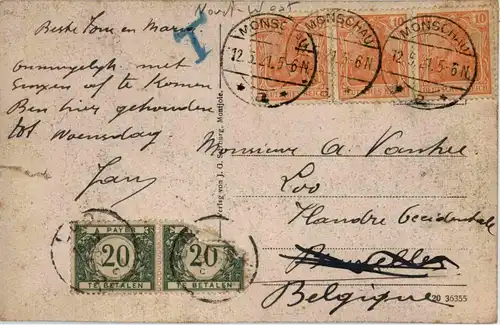 Noord-West
Beste Tom en Maria
T
onmogelijk met
Sinxen af te komen
Ben hier gehouden
tot Woensdag.
Jany
MONSCHAU
12.5.21.5-6N.
MONSCHAU
12.5.21.5-6N.
MONSCHAU
12.5.21.5-6N.
10
Monsieur A. Vanhee
Loo
Flandre Occidentale
Bruxelles
Belgique
Verlag von J. O. Montjoie.
20 36355
A PAYER
20
C
TE BETALEN
A PAYER
20
C
TE BETALEN